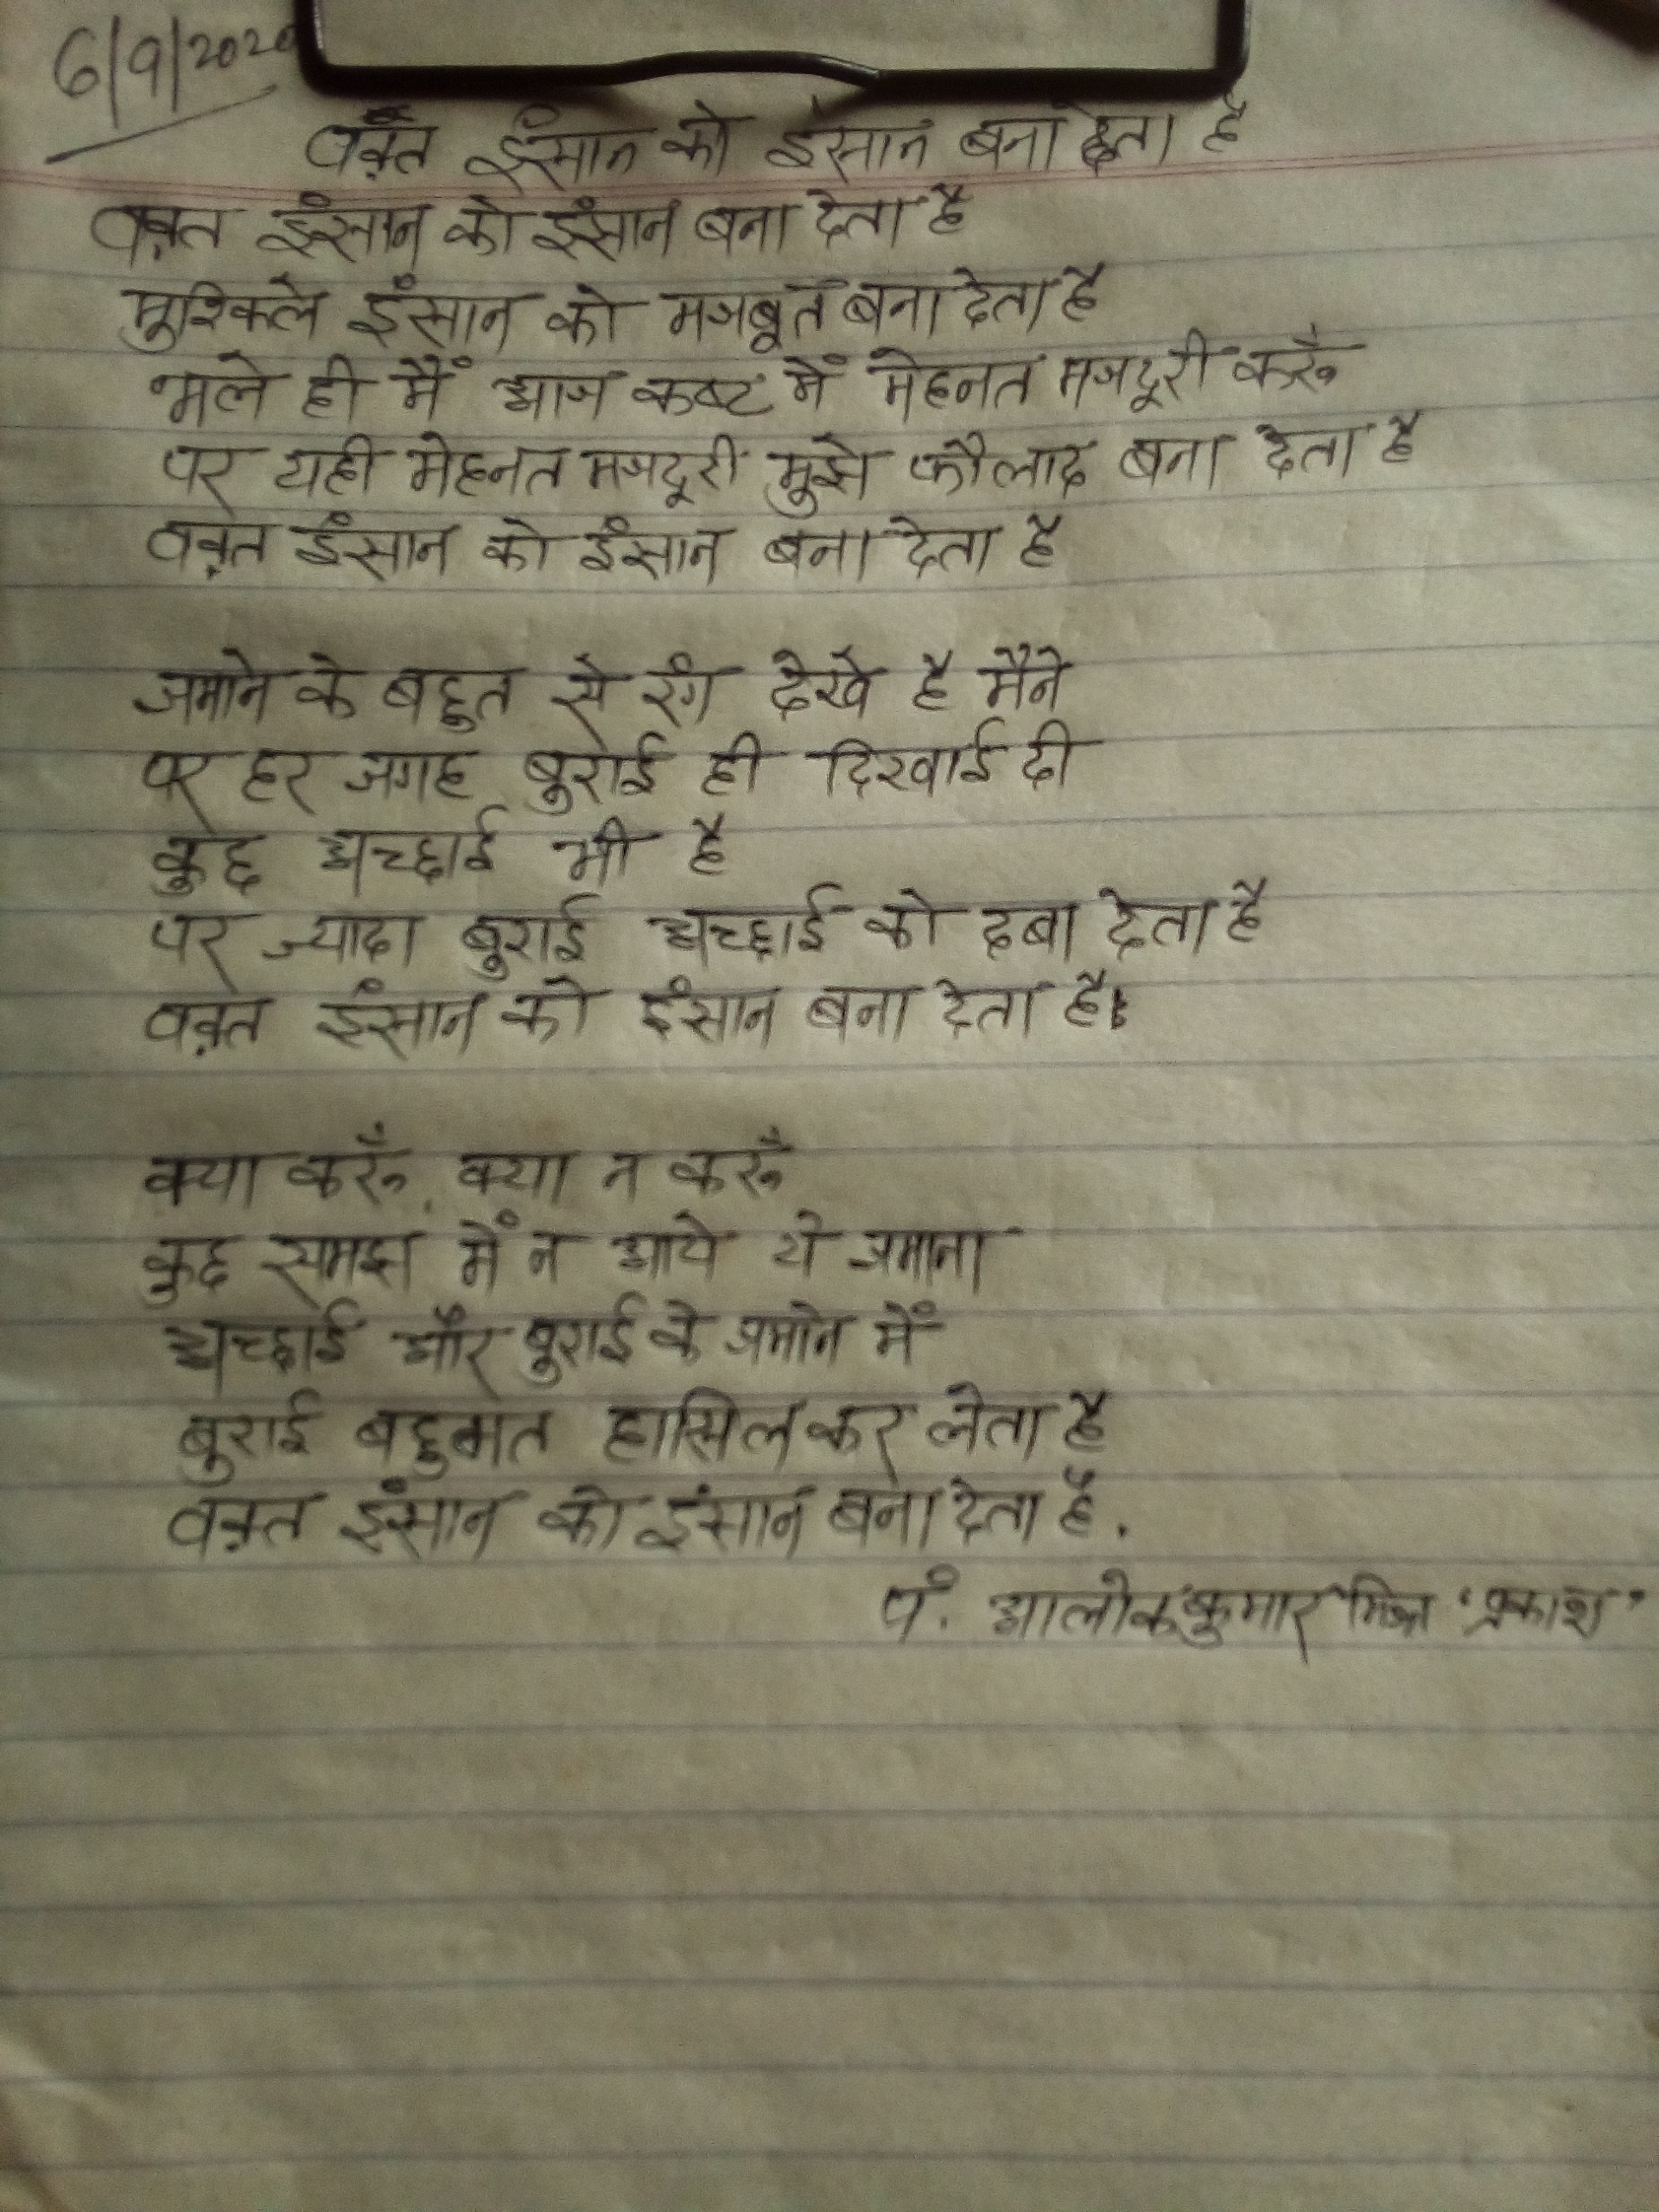 6/9/2020
वक़्त इंसान को इंसान बना देता है
वक़्त इंसान को इंसान बना देता है
मुश्किले इंसान को मजबूत बना देता है
भले ही मैं आज कष्ट में मेहनत मजदूरी करूँ
पर यही मेहनत मजदूरी मुझे फौलाद बना देता है
वक़्त इंसान को इंसान बना देता है
जमाने के बहुत से रंग देखे है मैने
पर हर जगह बुराई ही दिखाई दी
कुछ अच्छाई भी है
पर ज्यादा बुराई अच्छाई को दबा देता है
वक़्त इंसान को इंसान बना देता है।
क्या करूँ, क्या न करूँ
कुछ समझ में न आये ये जमाना
अच्छाई और बुराई के जमाने में
बुराई बहुमत हासिल कर लेता है
वक़्त इंसान को इंसान बना देता है.
पं. आलोक कुमार मिश्रा 'प्रकाश'